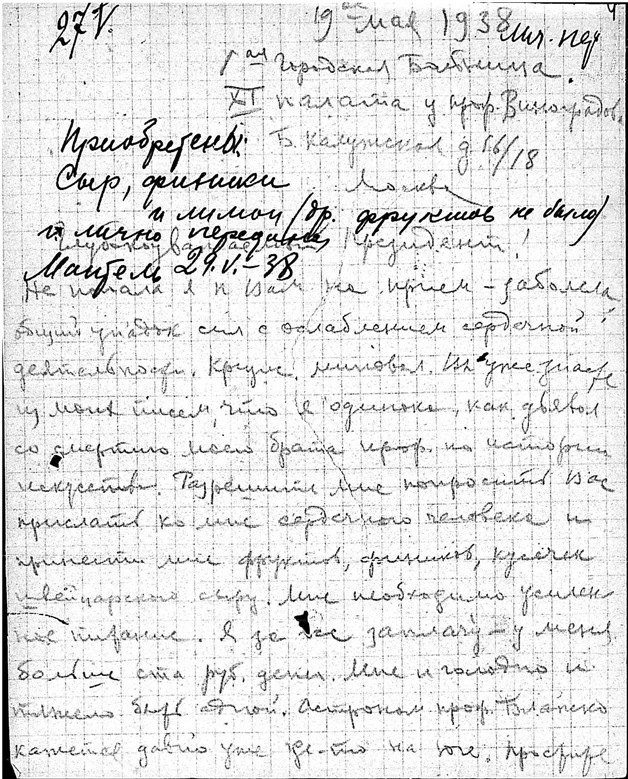 27 V.
19ое мая 1938
1ая Городская Больница.
XI палата у проф. Виноградова
Б. Калужская д. 16/18
Москва
Приобретены:
Сыр, финики
и лимон (др. фруктов не было)
и лично переданы
Глубокоуважаемый Президент!
Мантель 29.V.-38
Не попала я к Вам на прием – заболела
общий упадок сил с ослаблением сердечной
деятельности. Кризис миновал. Вы уже знаете
из моих писем, что я одинока, как дьявол
со смертию моего брата проф. по истории
искусств. Разрешите мне попросить Вас
прислать ко мне сердечного человека и
принести мне фруктов, фиников, кусочек
швейцарского сыру. Мне необходимо усилен-
ное питание. Я за все заплачу – у меня
больше ста руб. денег. Мне и голодно и
тяжело быть одной. Астроном проф. Блажко
кажется давно уже где-то на юге. Простите